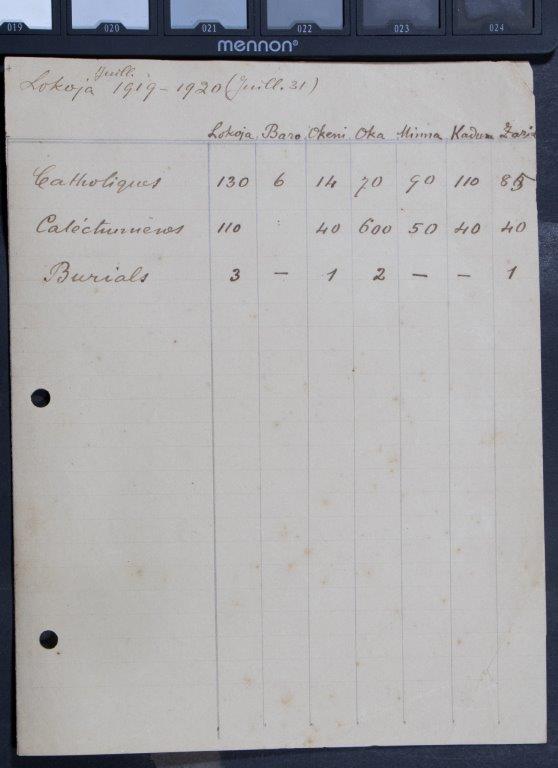 019 020 021 022 023 024
mennon®
Juill.
Lokoja 1919-1920 (Juill. 31)
Lokoja Baro Okeni Oka Minna Kaduna Zaria
Catholiques 130 6 14 70 90 110 85
Catéchumènes 110 40 600 50 40 40
Burials 3 — 1 2 — — 1